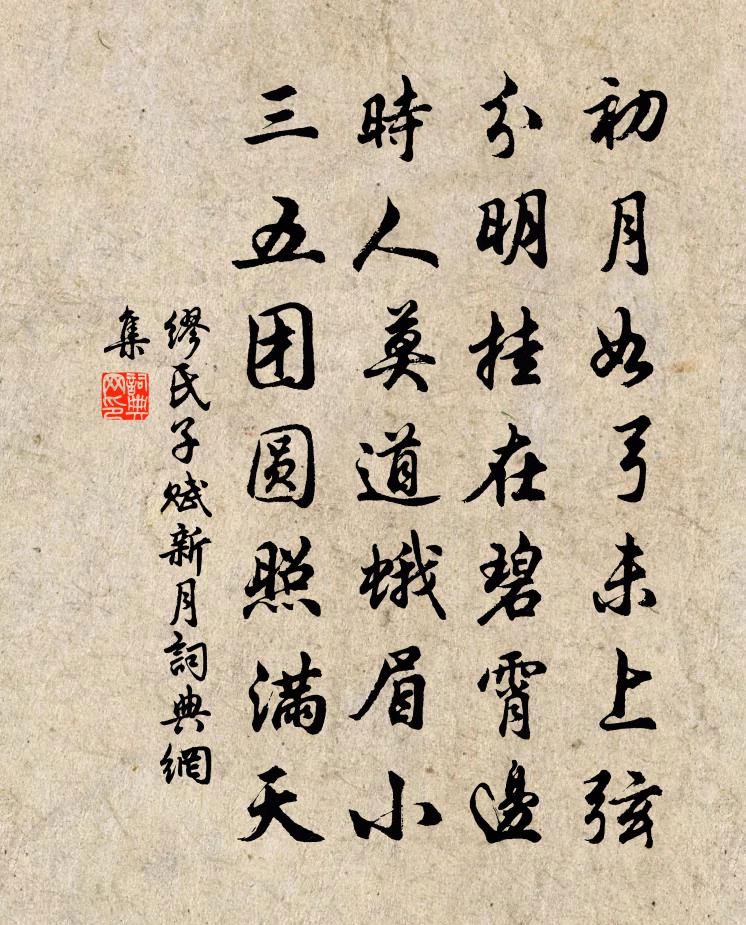 初月如弓未上弦
分明挂在碧霄邊
時人莫道蛾眉小
三五团圆照滿天
繆氏子賦新月詞典網
集
詞典
网印